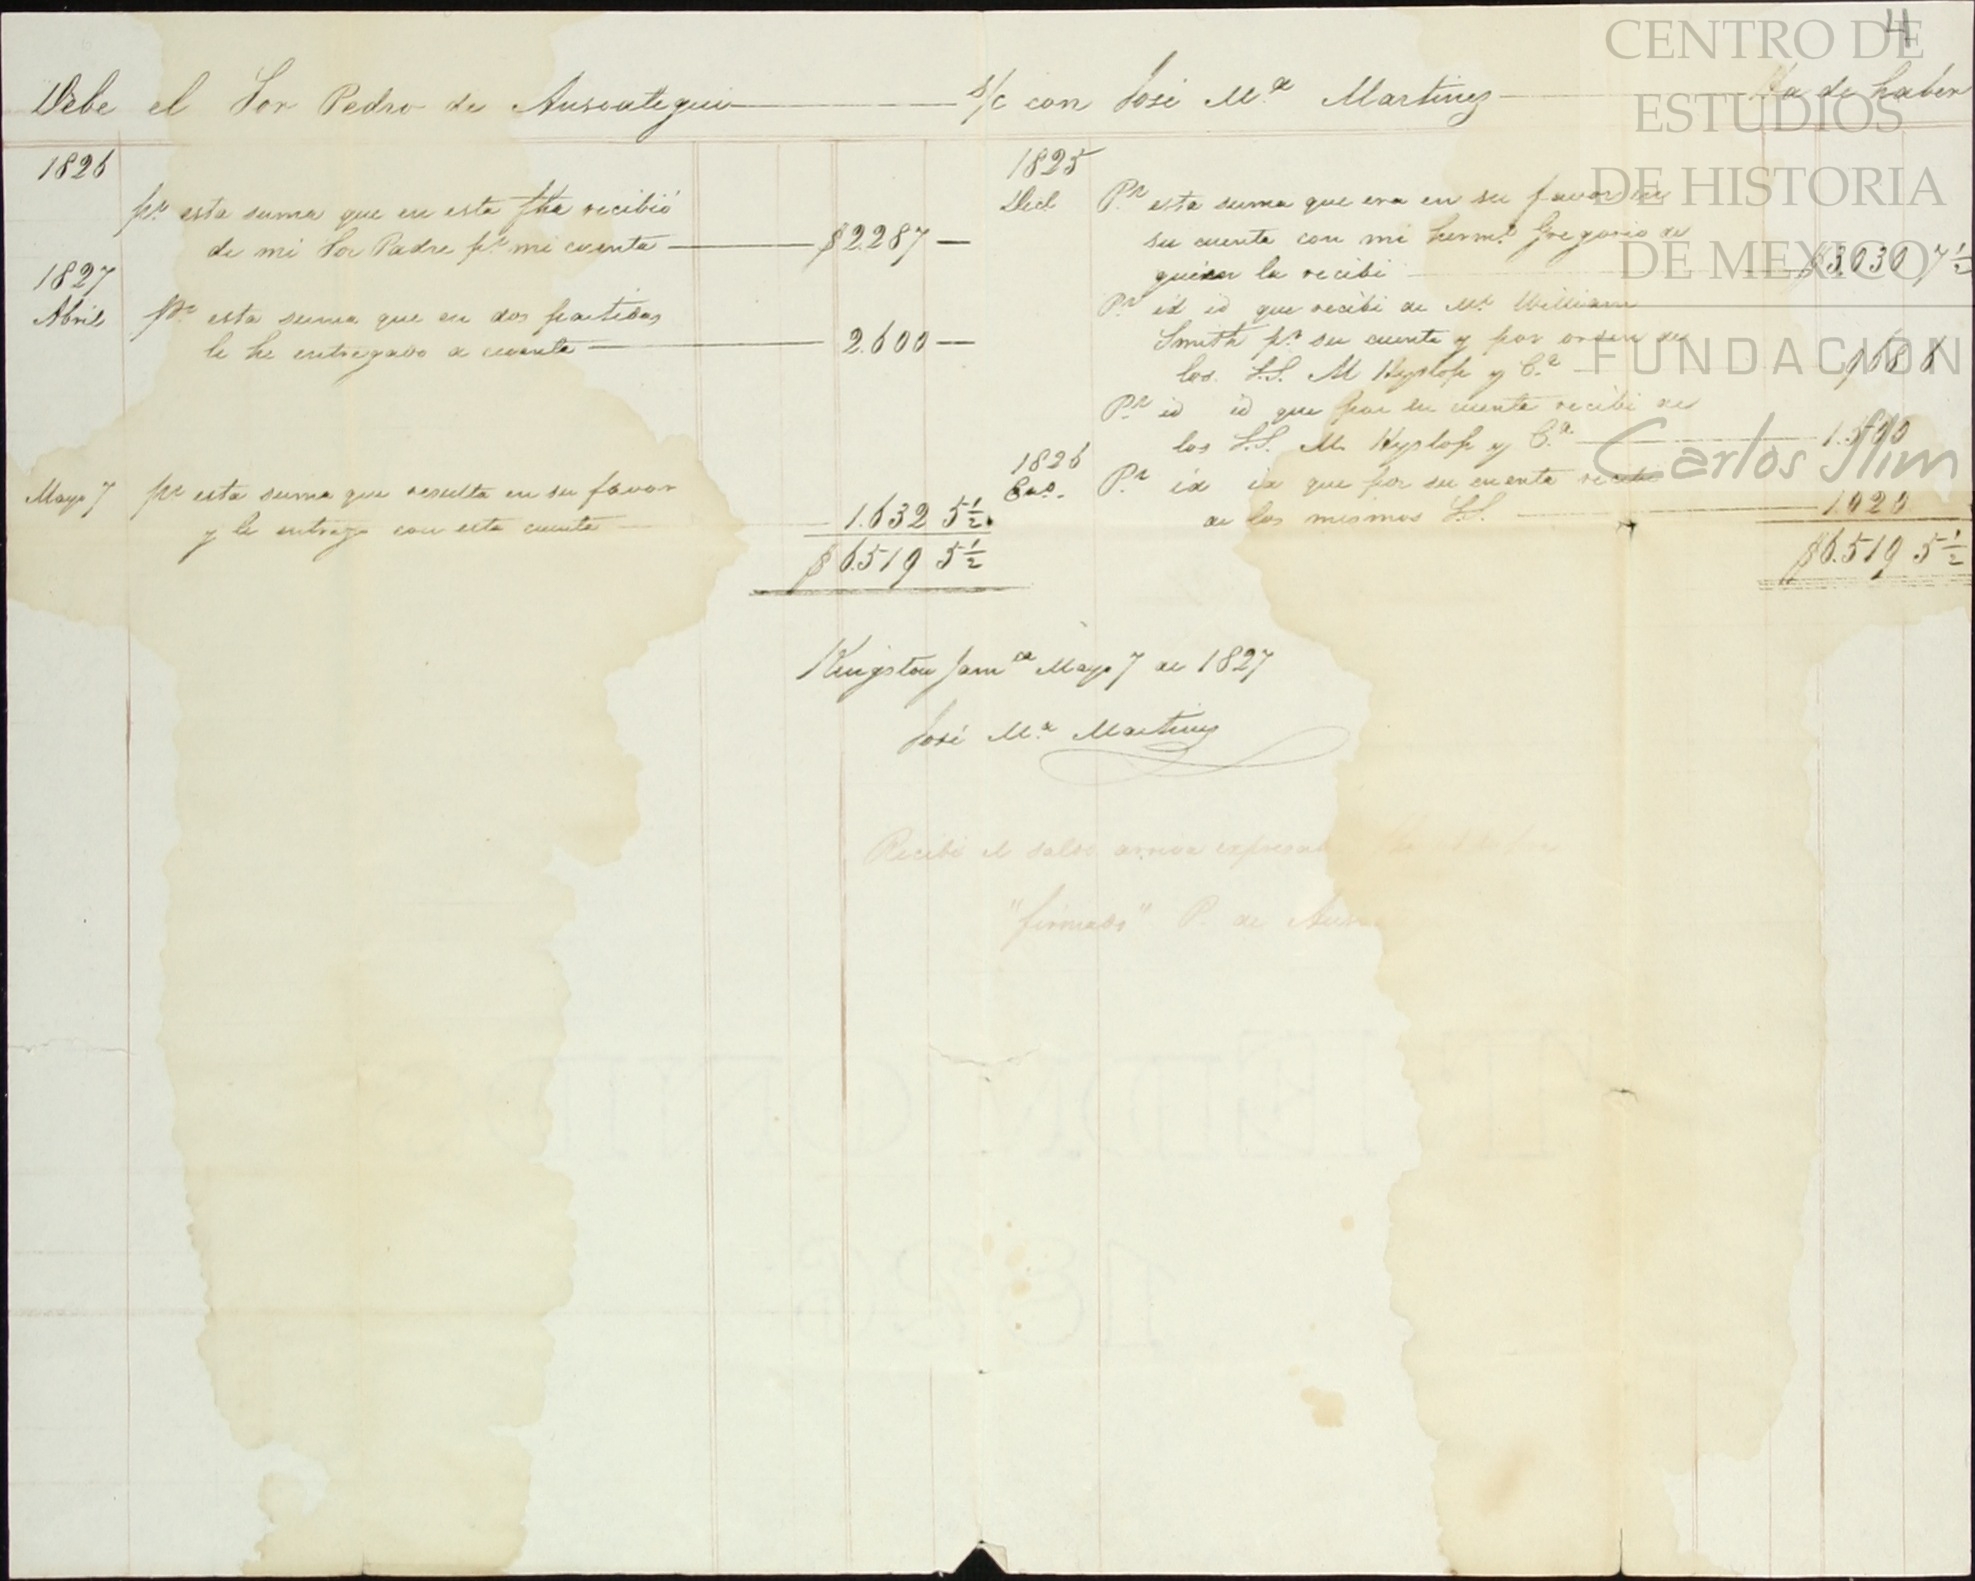 4
Debe el Sor Pedro de Ansoategui S/C con José M.ª Martinez Ha de haber
1826
pr. esta suma que en esta fha recibió
de mi Sor Padre pr. mi cuenta $2287 —
1827
Abril pr. esta suma que en dos partidas
le he entregado a cuenta 2.600 —
Mayo 7 pr. esta suma que resulta en su favor
y le entrego con esta cuenta 1.632 5½
$6.519 5½
1825
Dice. Pr. esta suma que era en su favor en
su cuenta con mi herm.º Gregorio de
quien la recibi $3.030 7½
Pr. id id que recibi de Mr. William
Smith pr. su cuenta y por orden de
los S.S. M Hyslop y C.ª 968 6
Pr. id id que por su cuenta recibi de
los S.S. M. Hyslop y C.ª 1.500
1826
Eno. Pr. id id que por su cuenta recibi
de los mismos S.S. 1.020
$6.519 5½
Kingston Jam.ca Mayo 7 de 1827
José M.ª Martinez
Recibi el saldo arriva expresado
"firmado" P. de Anso
CENTRO DE
ESTUDIOS
DE HISTORIA
DE MEXICO
FUNDACIÓN
Carlos Slim
1826